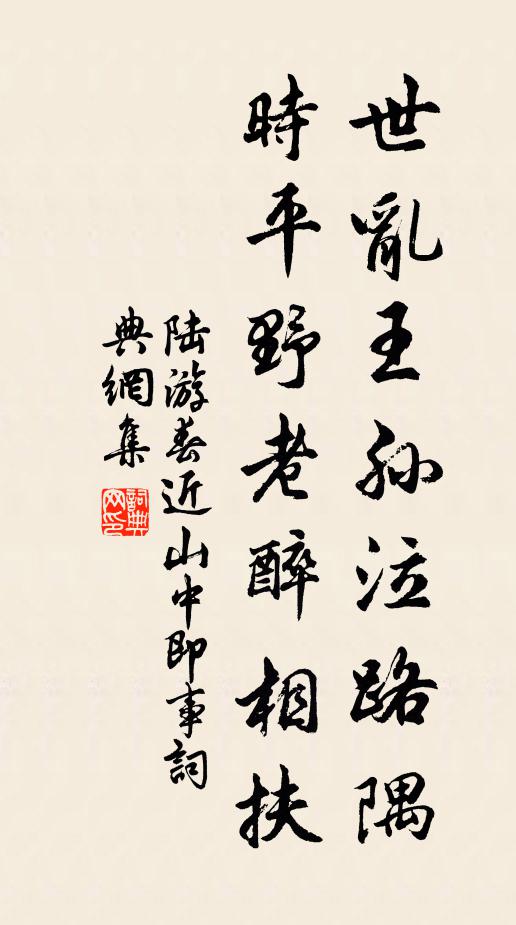 世亂王孫泣路隅
時平野老醉相扶
陸游春近山中即事詞
典網集
詞典網印